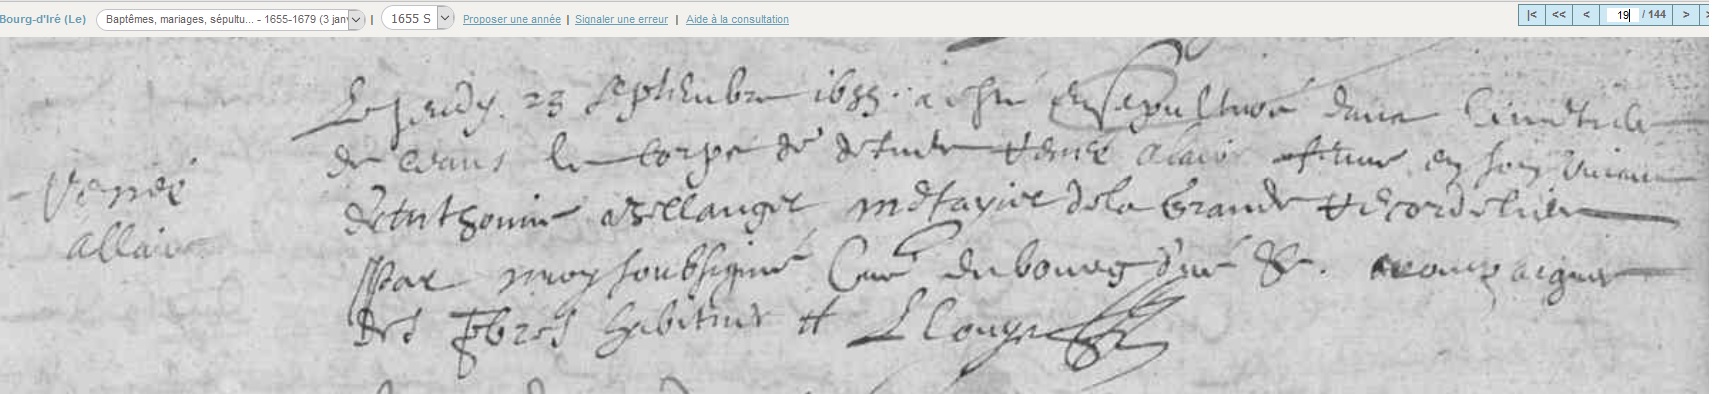 Bourg-d'Iré (Le) Baptêmes, mariages, sépultu... - 1655-1679 (3 jan | 1655 S Proposer une année | Signaler une erreur | Aide à la consultation |< << < 19 / 144 >
Le jeudy 23 septembre 1655 a esté ensepulturé dans le cimetiere
de ceans le corps de defunte Renee Alaire femme en son vivant
Renée
d'Anthoine Bellanger metayer de la Grande
allaire
Par moy soubsigné Curé du bourg d'iré &c. accompaigné
des pbres habitués